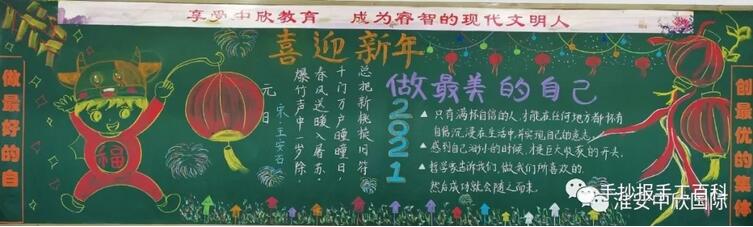 享受中欣教育 成为睿智的现代文明人
做最好的自
创最优的集体
喜迎新年
元日
宋 王安石
爆竹声中一岁除,
春风送暖入屠苏。
千门万户曈曈日,
总把新桃换旧符。
福
2021
做最美的自己
▲只有满怀自信的人,才能在任何地方都怀有
自信,沉浸在生活中,并实现自己的意志。
▲感到自己渺小的时候,才是巨大收获的开头。
▲哲学家告诉我们,做我们所喜欢的,
然后成功就会随之而来。
手抄报手工百科
淮安中欣国际